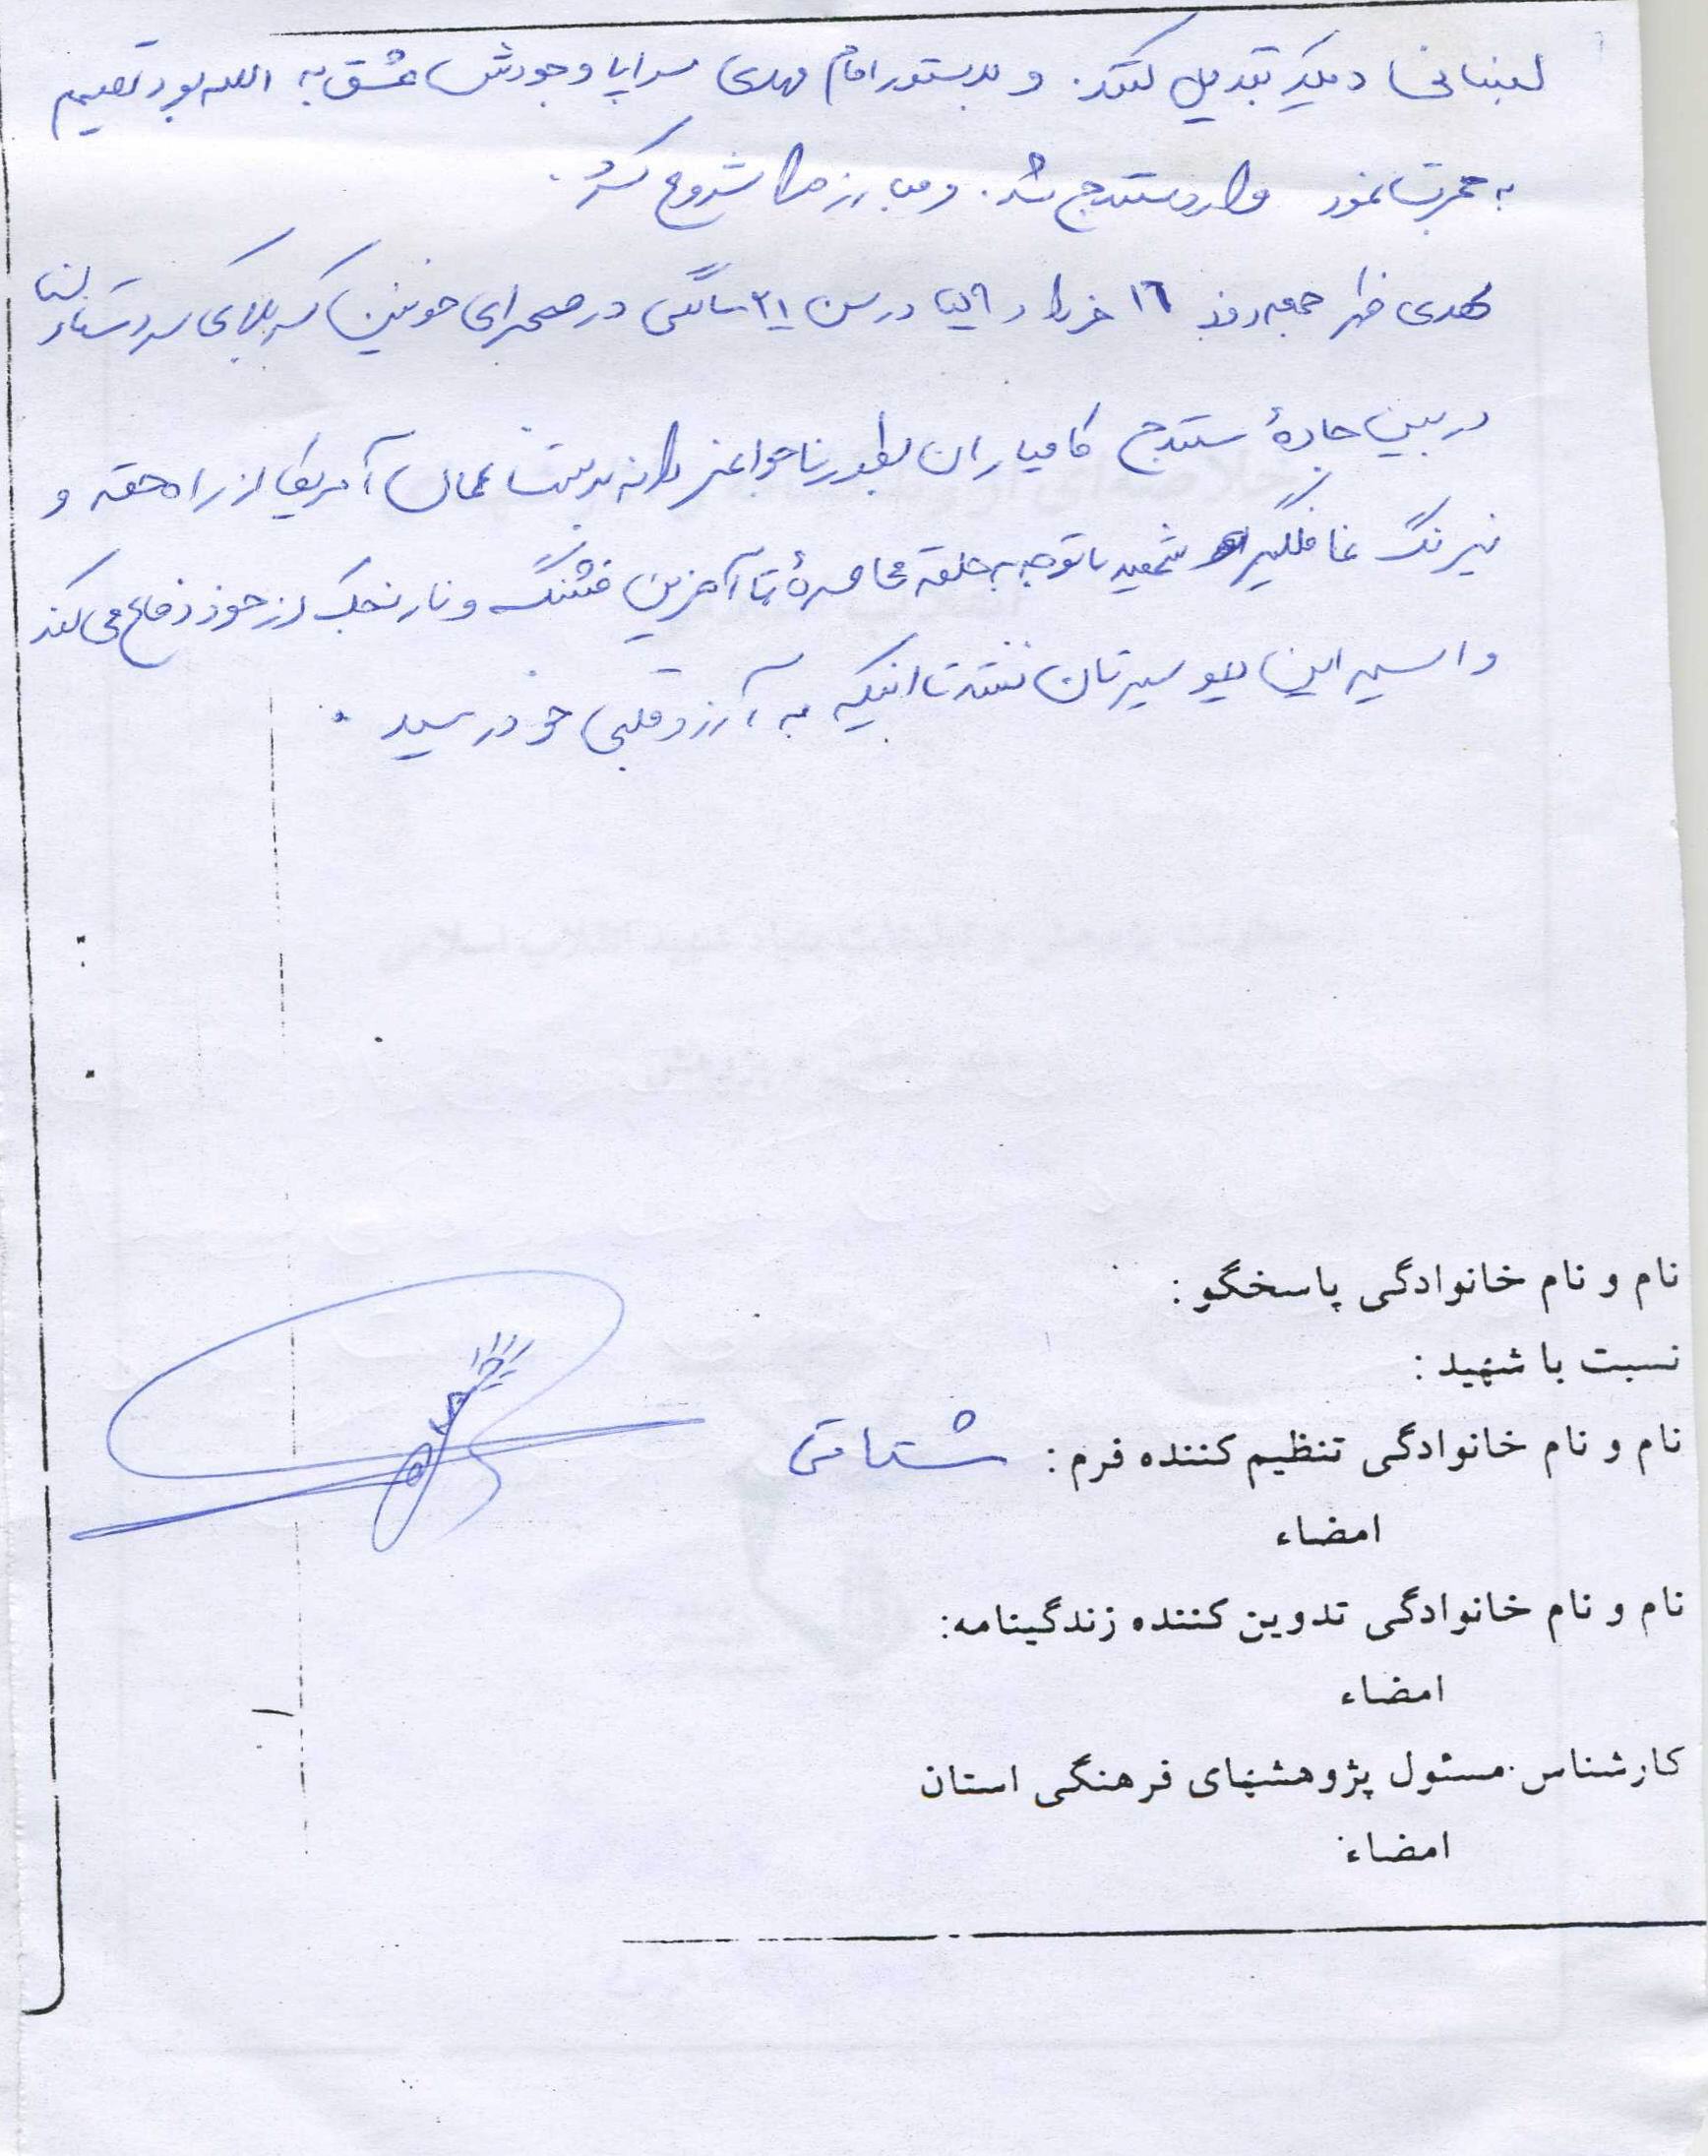 لبنانی دیگر تبدیل کنند. و بدستور امام مهدی سراپا وجودش عشق به الله بود تصمیم
به هجرت نمود وارد سنندج شد. و مبارزه را شروع کرد.
مهدی ظهر جمعه روز ۱۶ خرداد ۵۹ در سن ۲۱ سالگی در صحرای خونین کربلای کردستان
در بین جادهٔ سنندج کامیاران بطور ناجوانمردانه بدست عمال آمریکا از راه حقه و
نیرنگ غافلگیر شهید با توجه به حلقه محاصرهٔ تا آخرین فشنگ و نارنجک از خود دفاع می کند
و اسیر این دیو سیرتان نشد تا اینکه به آرزو قلبی خود رسید.
نام و نام خانوادگی پاسخگو:
نسبت با شهید:
نام و نام خانوادگی تنظیم کننده فرم:
امضاء
نام و نام خانوادگی تدوین کننده زندگینامه:
امضاء
کارشناس مسئول پژوهشهای فرهنگی استان
امضاء